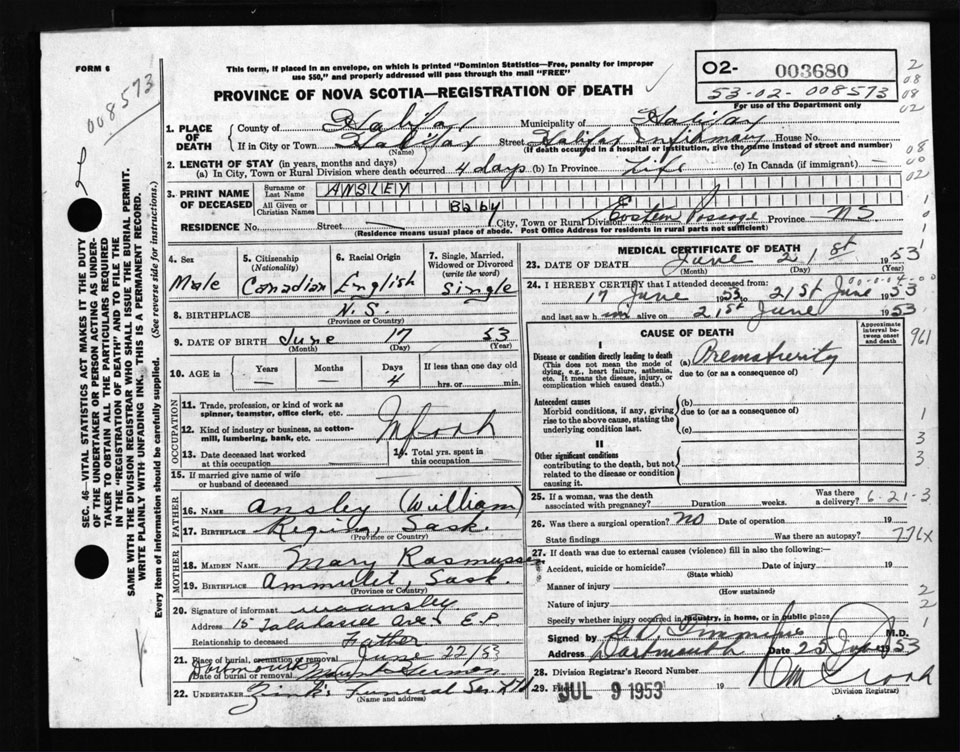 FORM 6
008573
This form, if placed in an envelope, on which is printed "Dominion Statistics—Free, penalty for improper
use $50," and properly addressed will pass through the mail "FREE"
PROVINCE OF NOVA SCOTIA—REGISTRATION OF DEATH
02- 003680
53-02-008573
For use of the Department only
2
08
08
02
08
00
02
1. PLACE OF DEATH County of Halifax Municipality of Halifax
If in City or Town Halifax (Name) Street Halifax Infirmary House No.
(If death occurred in a hospital or institution, give the name instead of street and number)
2. LENGTH OF STAY (in years, months and days)
(a) In City, Town or Rural Division where death occurred 4 days (b) In Province Life (c) In Canada (if immigrant) —
3. PRINT NAME OF DECEASED Surname or Last Name ANSLEY
All Given or Christian Names Baby
RESIDENCE No. Street City, Town or Rural Division Eastern Passage Province NS
(Residence means usual place of abode. Post Office Address for residents in rural parts not sufficient)
SEC. 46—VITAL STATISTICS ACT MAKES IT THE DUTY
OF THE UNDERTAKER OR PERSON ACTING AS UNDER-
TAKER TO OBTAIN ALL THE PARTICULARS REQUIRED
IN THE "REGISTRATION OF DEATH" AND TO FILE THE
SAME WITH THE DIVISION REGISTRAR WHO SHALL ISSUE THE BURIAL PERMIT.
WRITE PLAINLY WITH UNFADING INK. THIS IS A PERMANENT RECORD.
Every item of information should be carefully supplied. (See reverse side for instructions.)
4. Sex Male
5. Citizenship (Nationality) Canadian
6. Racial Origin English
7. Single, Married, Widowed or Divorced (write the word) Single
8. BIRTHPLACE N.S.
(Province or Country)
9. DATE OF BIRTH June 17 53
(Month) (Day) (Year)
10. AGE in Years — Months — Days 4 If less than one day old hrs. or min.
OCCUPATION
11. Trade, profession, or kind of work as spinner, teamster, office clerk, etc.
12. Kind of industry or business, as cotton-mill, lumbering, bank, etc.
13. Date deceased last worked at this occupation
14. Total yrs. spent in this occupation
15. If married give name of wife or husband of deceased
FATHER
16. NAME Ansley (William)
17. BIRTHPLACE Regina, Sask.
(Province or Country)
MOTHER
18. MAIDEN NAME Mary Rasmussen
19. BIRTHPLACE Sask.
(Province or Country)
20. Signature of informant
Address 15 Ave E.P
Relationship to deceased Father
21. Place of burial, cremation or removal June 22/53
Date of burial or removal Dartmouth Mount Hermon
22. UNDERTAKER Zink's Funeral Ser. Ltd
(Name and address)
MEDICAL CERTIFICATE OF DEATH
23. DATE OF DEATH June 21st 1953
(Month) (Day) (Year)
24. I HEREBY CERTIFY that I attended deceased from:
17 June 1953 to 21st June 1953
and last saw him on 21st June 1953
CAUSE OF DEATH
Approximate interval between onset and death
961
I
Disease or condition directly leading to death
(This does not mean the mode of dying, e.g., heart failure, asthenia, etc. It means the disease, injury, or complication which caused death.)
(a) Prematurity
due to (or as a consequence of)
Antecedent causes
Morbid conditions, if any, giving rise to the above cause, stating the underlying condition last.
(b)
due to (or as a consequence of)
(c)
II
Other significant conditions
contributing to the death, but not related to the disease or condition causing it.
3
3
25. If a woman, was the death associated with pregnancy? Duration weeks. Was there a delivery? 6-21-3
26. Was there a surgical operation? No Date of operation 19
State findings Was there an autopsy? 776X
27. If death was due to external causes (violence) fill in also the following:—
Accident, suicide or homicide? Date of injury 19
(State which)
Manner of injury
(How sustained)
Nature of injury
2
2
Specify whether injury occurred in industry, in home, or in public place
Signed by M.D.
Address Dartmouth Date 25 June 1953
28. Division Registrar's Record Number
29. Filed JUL 9 1953
(Division Registrar)